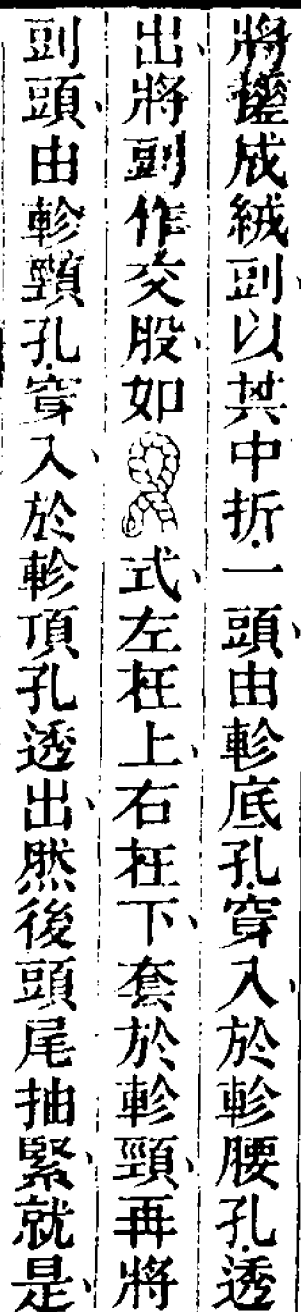 將䥫成絨剅以其中折一頭由軫底孔穿入於軫腰孔透
出將剅作交股如式左枉上右枉下套於軫頸再將
剅頭由軫頸孔穿入於軫頂孔透出然後頭尾抽緊就是